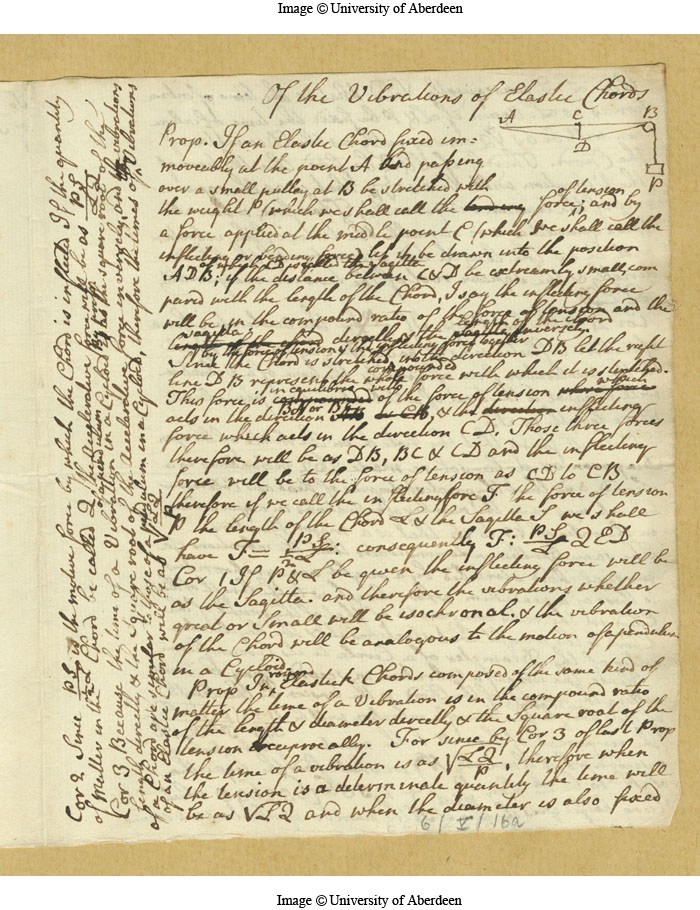 Image © University of Aberdeen
Of the Vibrations of Elastic Chords
A C B
D
P
Prop. If an Elastic Chord fixed im=
moveably at the point A and passing
over a small pulley at B be stretched with
of tension
the weight P (which we shall call the force; and by
a force applied at the middle point C (which we shall call the
inflecting or bending force) let it be drawn into the position
which CD is called the Sagitta
ADB; if the distance between C & D be extreamly small, com
pared with the length of the Chord, I say the inflecting force
will be in the compound ratio of the force of tension and the
sagitta directly & the length of the chord inversely
by the force of tension & the inflecting force together
Since the Chord is stretched in the direction DB let the right
compounded
line DB represent the whole force with which it is stretched.
in equilibrio with
This force is compounded of the force of tension which
acts in the direction BC or BP & the direction inflecting
force which acts in the direction CD. Those three forces
therefore will be as DB, BC & CD and the inflecting
force will be to the force of tension as CD to CB
therefore if we call the inflecting force F the force of tension
P the length of the Chord L & the Sagitta S we shall
have F = PS/½L: consequently F: PS/L QED
Cor 1. If P & L be given the inflecting force will be
as the Sagitta. and therefore the vibrations whether
great or Small will be isochronal. & the vibration
of the Chord will be analogous to the motion of a pendulum
in a Cycloid.
various
Prop In Elastick Chords composed of the same kind of
matter the time of a Vibration is in the compound ratio
of the length & diameter directly & the Square root of the
tension reciprocally. For since by Cor 3 of last Prop
the time of a vibration is as √LQ/P, therefore when
the tension is a determinate quantity the time will
be as √LQ and when the diameter is also fixed
6/V/16a
Cor 2. Since PS/½L is the motive force by which the Chord is inflected If the quantity
of Matter in the Chord be called Q the accelerative force will be as PS/LQ
Cor 3 Because the time of a Vibration in a Cycloid is as the square root of the
length directly & the Square root of the accelerative force inversely, and the vibrations
of a Chord are similar to those of a pendulum in a Cycloid, therefore the times of Vibrations
of an Elastic Chord will be as √LQ/P
Image © University of Aberdeen